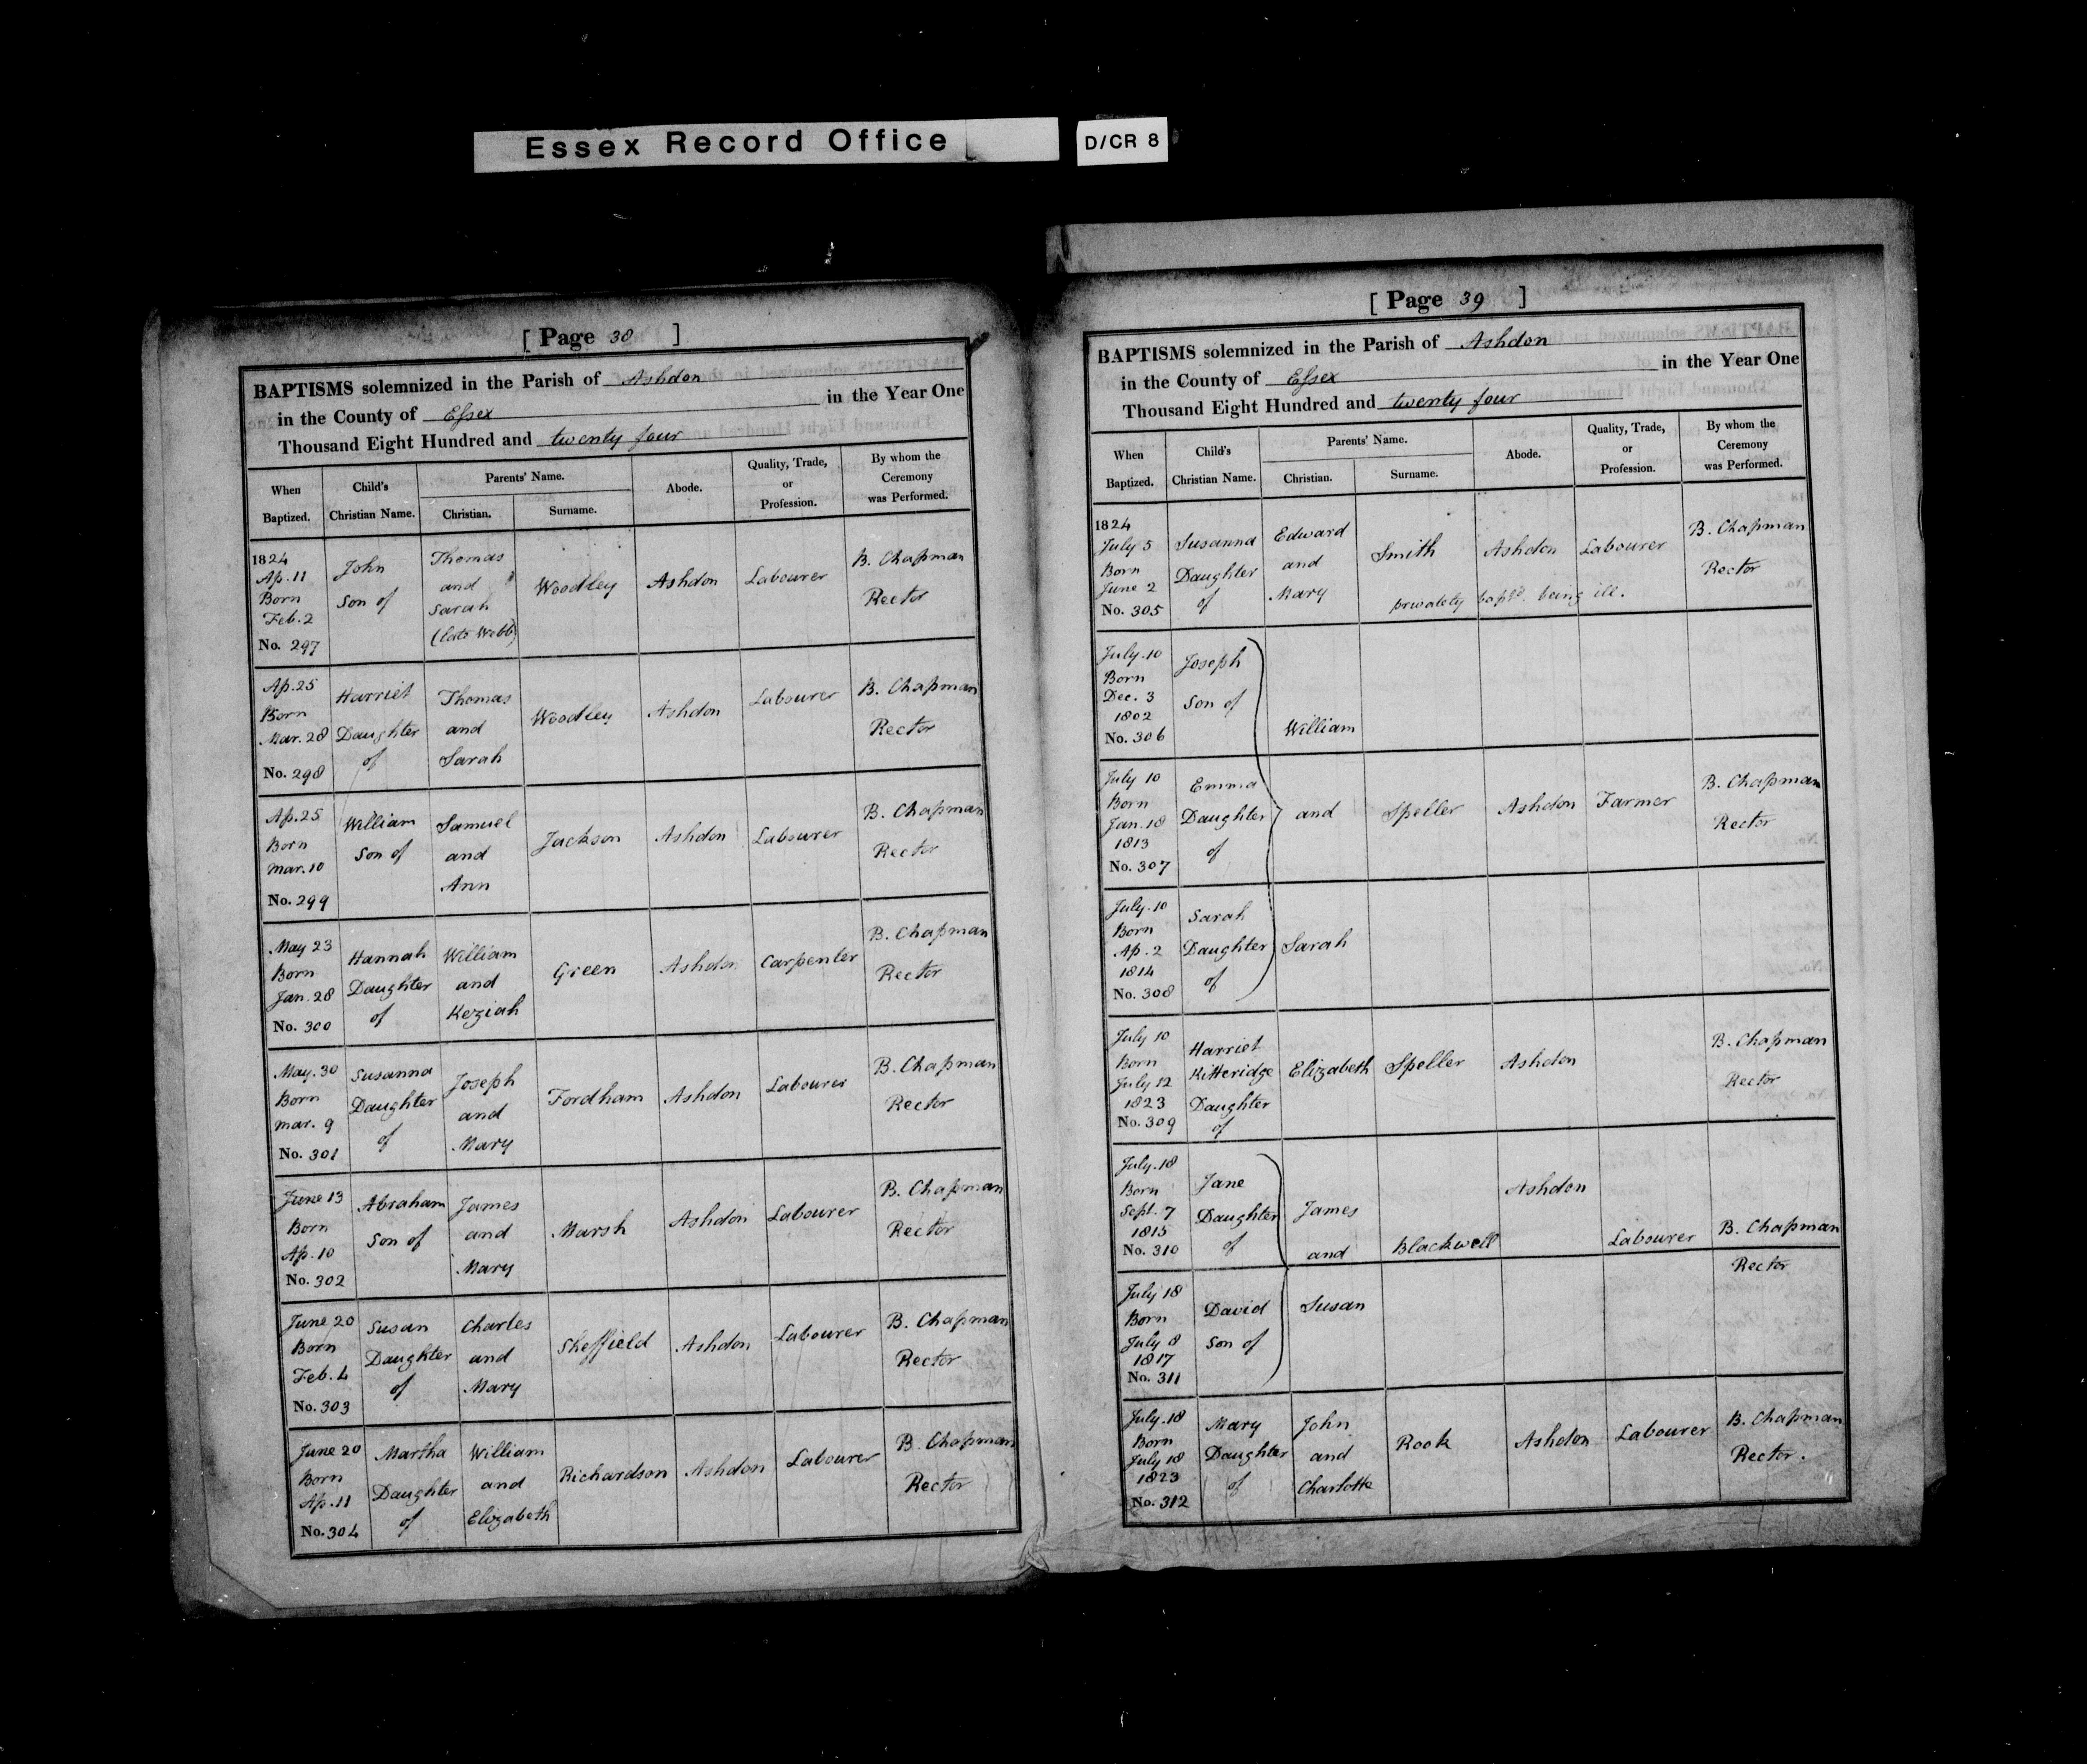 Essex Record Office
D/CR 8
[ Page 38 ]
BAPTISMS solemnized in the Parish of Ashdon
in the County of Essex in the Year One
Thousand Eight Hundred and twenty four
When Baptized. Child's Christian Name. Parents' Name. Christian. Surname. Abode. Quality, Trade, or Profession. By whom the Ceremony was Performed.
1824 Ap. 11 Born Feb. 2 No. 297 John Son of Thomas and Sarah (late Webb) Woodley Ashdon Labourer B. Chapman Rector
Ap. 25 Born Mar. 28 No. 298 Harriet Daughter of Thomas and Sarah Woodley Ashdon Labourer B. Chapman Rector
Ap. 25 Born Mar. 10 No. 299 William Son of Samuel and Ann Jackson Ashdon Labourer B. Chapman Rector
May 23 Born Jan. 28 No. 300 Hannah Daughter of William and Keziah Green Ashdon Carpenter B. Chapman Rector
May. 30 Born Mar. 9 No. 301 Susanna Daughter of Joseph and Mary Fordham Ashdon Labourer B. Chapman Rector
June 13 Born Ap. 10 No. 302 Abraham Son of James and Mary Marsh Ashdon Labourer B. Chapman Rector
June 20 Born Feb. 4 No. 303 Susan Daughter of Charles and Mary Sheffield Ashdon Labourer B. Chapman Rector
June 20 Born Ap. 11 No. 304 Martha Daughter of William and Elizabeth Richardson Ashdon Labourer B. Chapman Rector
[ Page 39 ]
BAPTISMS solemnized in the Parish of Ashdon
in the County of Essex in the Year One
Thousand Eight Hundred and twenty four
When Baptized. Child's Christian Name. Parents' Name. Christian. Surname. Abode. Quality, Trade, or Profession. By whom the Ceremony was Performed.
1824 July 5 Born June 2 No. 305 Susanna Daughter of Edward and Mary Smith Ashdon Labourer B. Chapman Rector
privately bapt'd. being ill.
July. 10 Born Dec. 3 1802 No. 306 Joseph Son of William
July 10 Born Jan. 18 1813 No. 307 Emma Daughter of and Speller Ashdon Farmer B. Chapman Rector
July. 10 Born Ap. 2 1814 No. 308 Sarah Daughter of Sarah
July 10 Born July 12 1823 No. 309 Harriet Kitteridge Daughter of Elizabeth Speller Ashdon B. Chapman Rector
July. 18 Born Sept. 7 1815 No. 310 Jane Daughter of James and Blackwell Ashdon Labourer B. Chapman Rector
July 18 Born July 8 1817 No. 311 David Son of Susan
July. 18 Born July 18 1823 No. 312 Mary Daughter of John and Charlotte Rook Ashdon Labourer B. Chapman Rector.